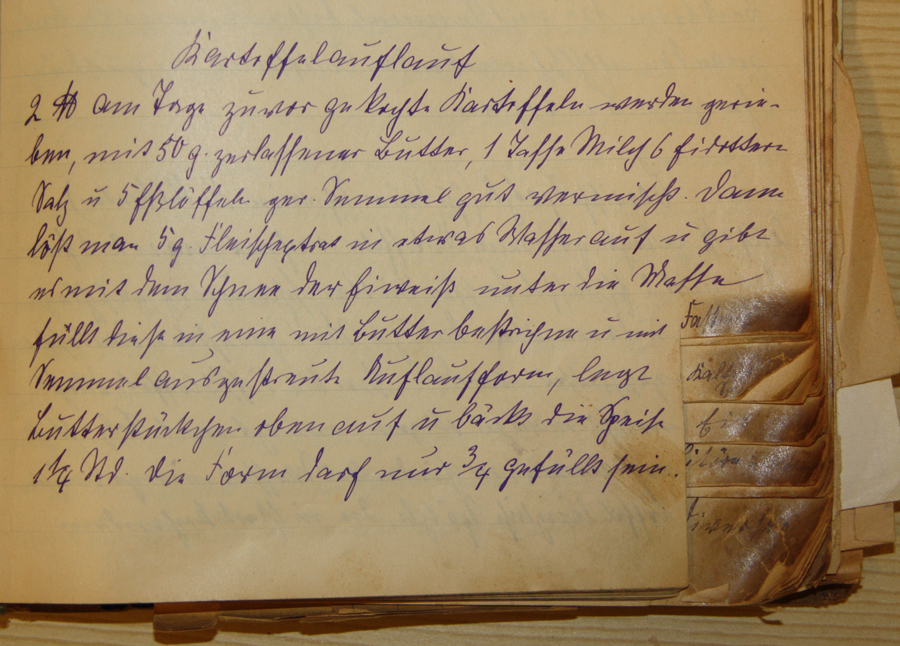 Kartoffelauflauf
2 ℔ am Tage zuvor gekochte Kartoffeln werden gerie-
ben, mit 50 g. zerlassener Butter, 1 Tasse Milch 6 Eidottern
Salz u 5 Eßlöffeln ger. Semmel gut vermischt. Dann
löst man 5 g. Fleischextrat in etwas Wasser auf u gibt
es mit dem Schnee der Eiweiß unter die Masse
füllt diese in eine mit Butter bestrichne u mit
Semmel ausgestreute Auflaufform, legt
Butterstückchen oben auf u bäckt die Speise
1¼ Std. Die Form darf nur ¾ gefüllt sein.